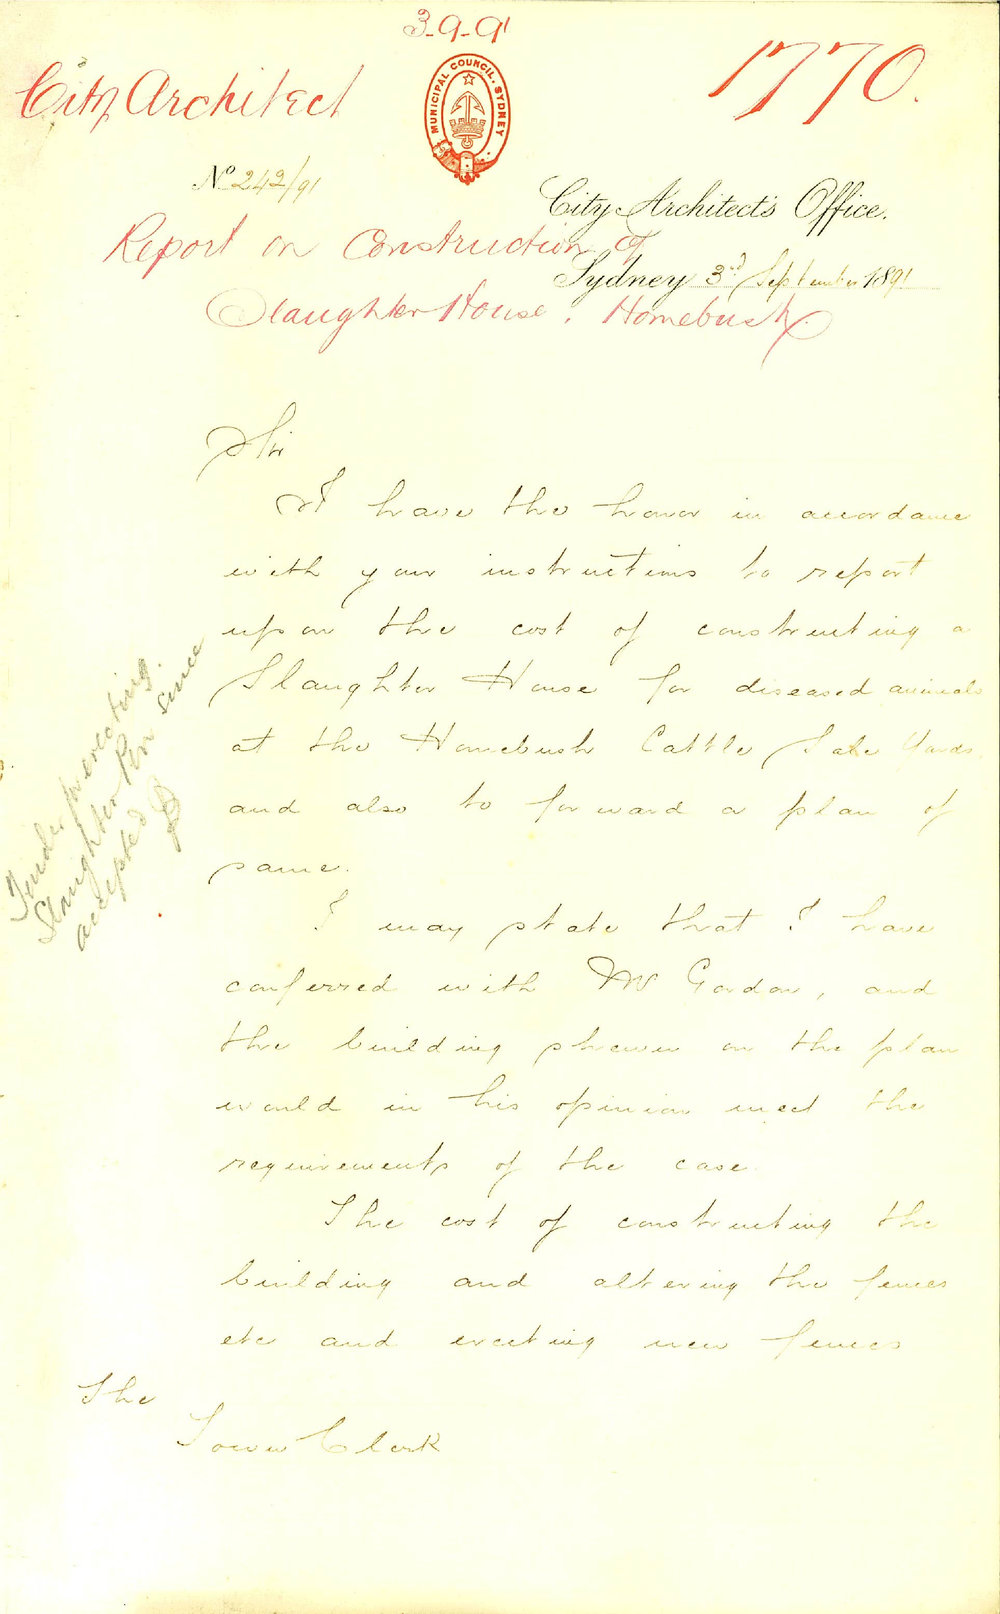 3-9-91
City Architect
1770.
MUNICIPAL COUNCIL. SYDNEY
No 242/91
City Architect's Office.
Report on Construction of
Sydney 3rd September 1891
Slaughter House, Homebush.
Sir
I have the honor in accordance
with your instructions to report
upon the cost of constructing a
Slaughter House for diseased animals
at the Homebush Cattle Sale Yards.
and also to forward a plan of
same.
Tender for erecting
Slaughter Pen since
accepted
I may state that I have
conferred with Mr Gordon, and
the building shewn on the plan
would in his opinion meet the
requirements of the case.
The cost of constructing the
building and altering the fences
etc and erecting new fences
The
Town Clerk